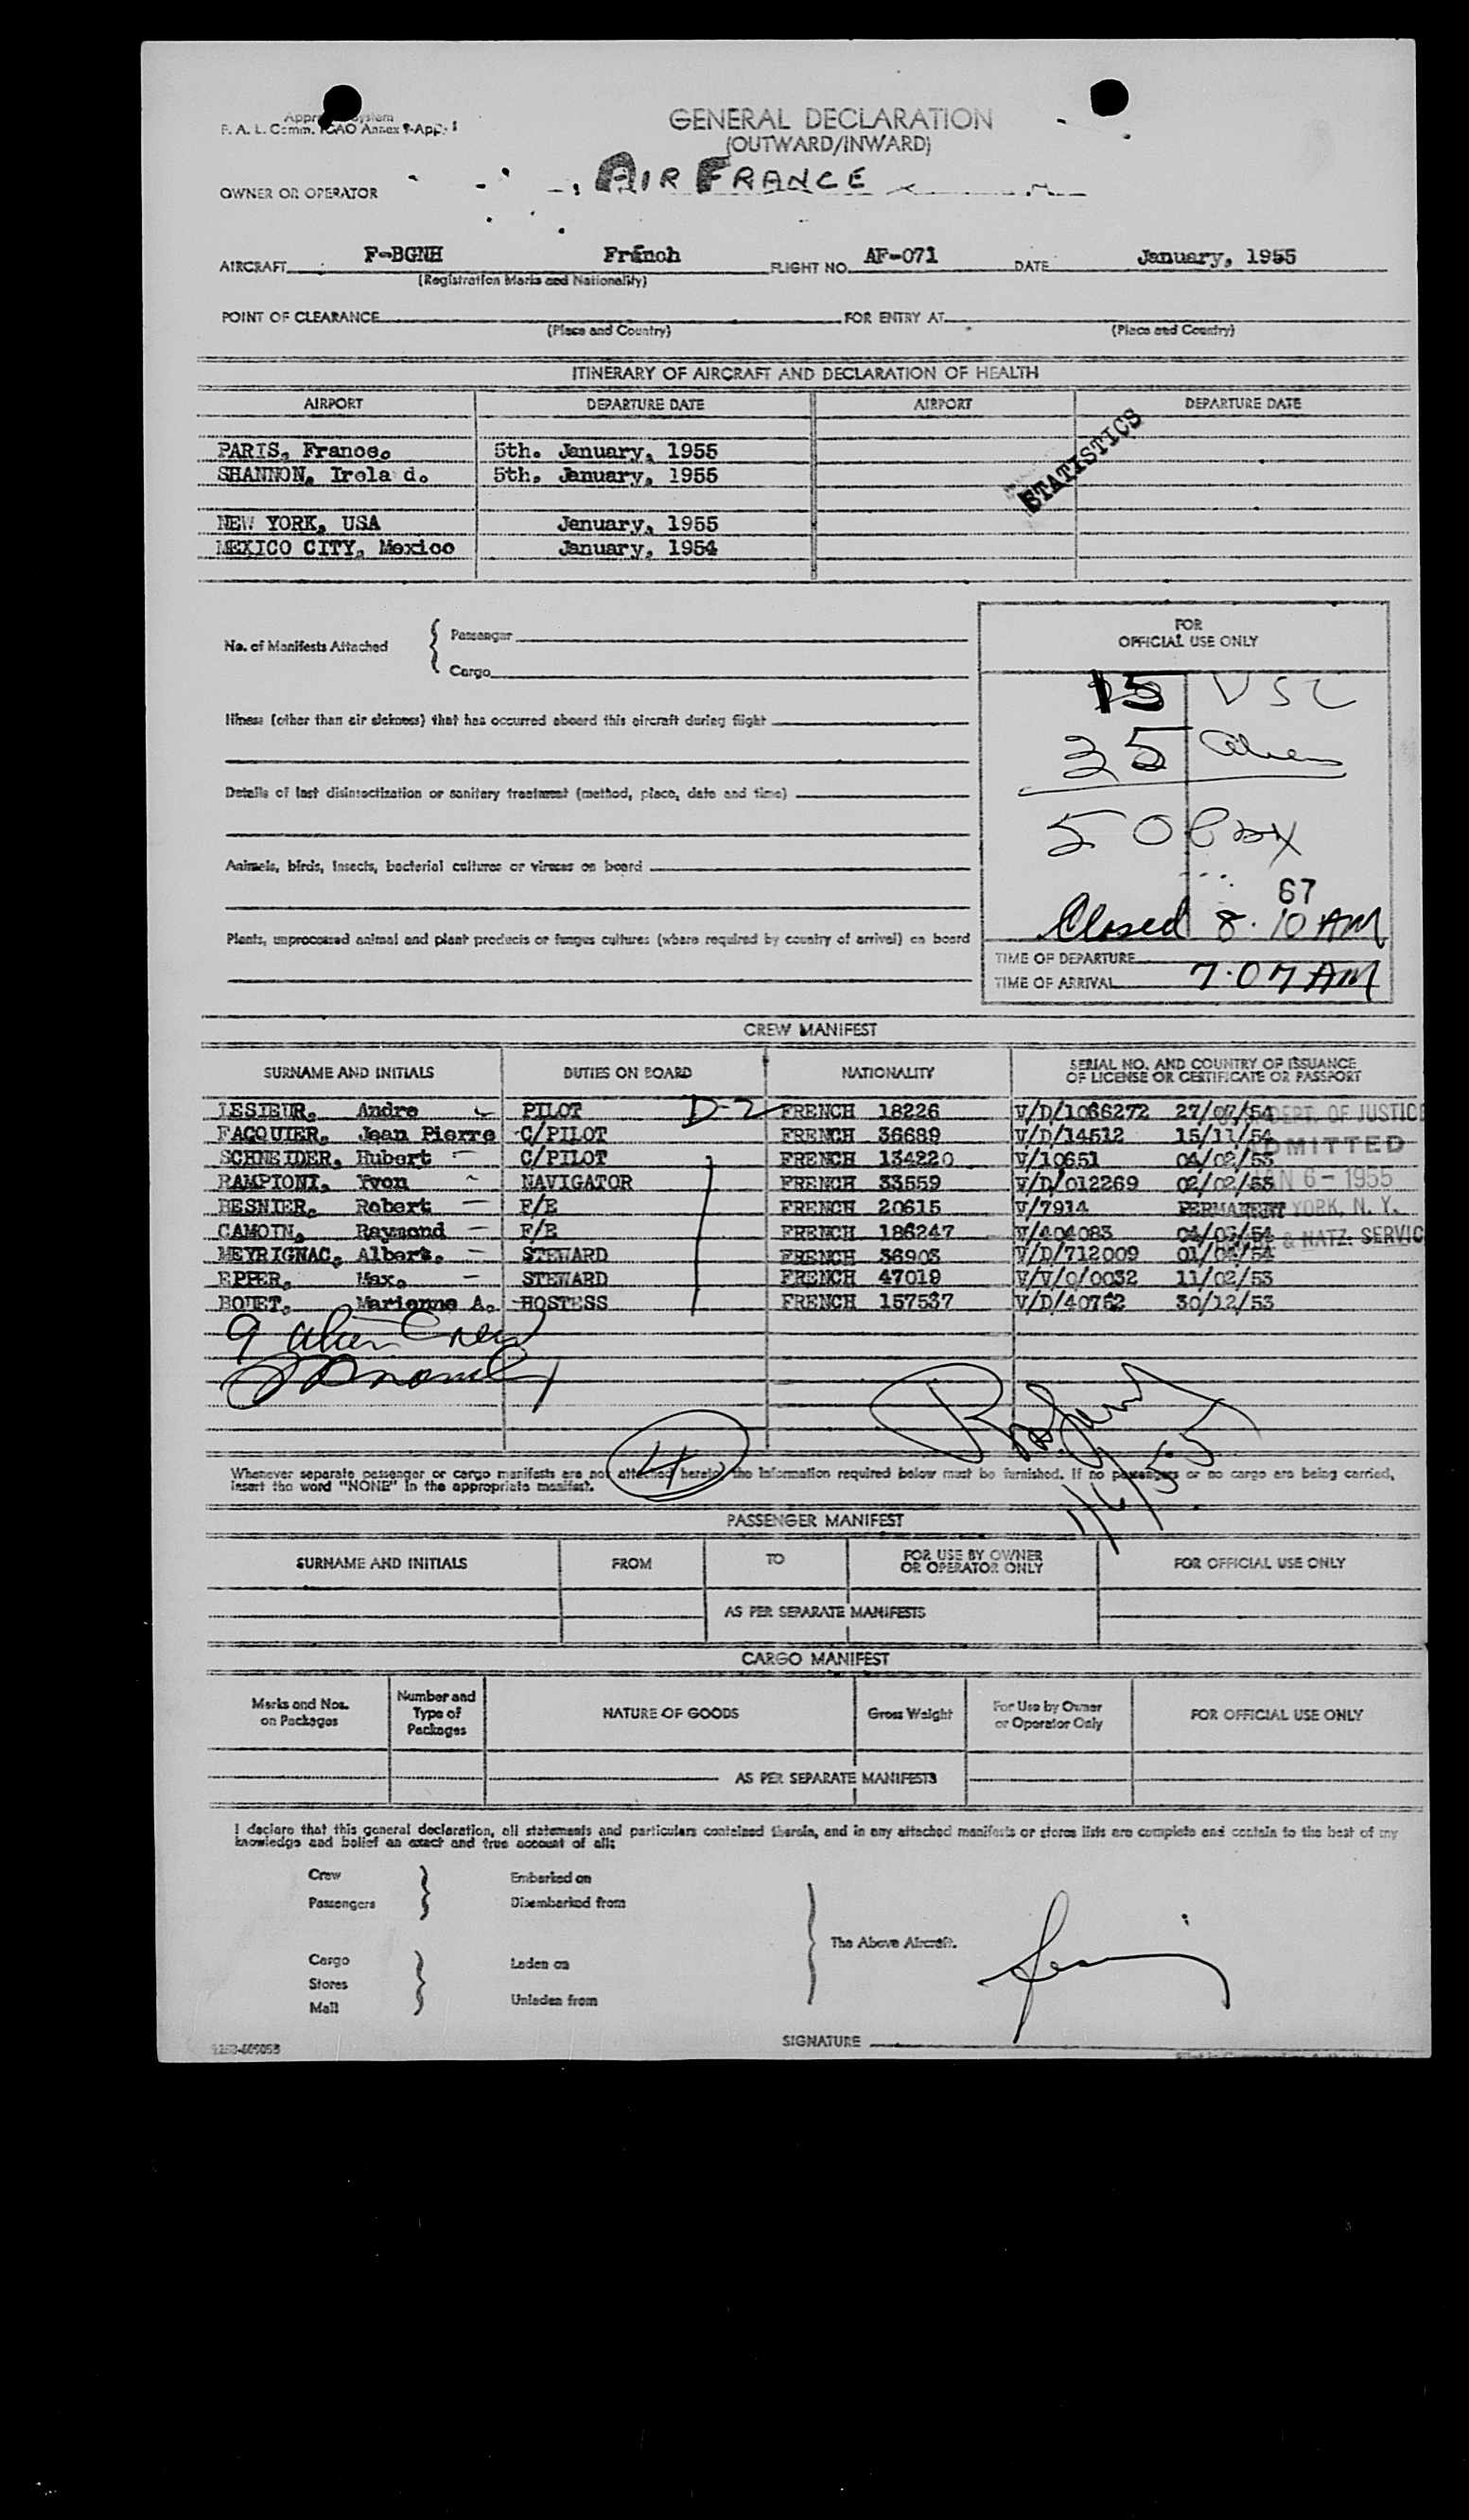 GENERAL DECLARATION
(OUTWARD/INWARD)
F. A. L. Comm. ICAO Annex 9-App. 1
OWNER OR OPERATOR AIR FRANCE
AIRCRAFT F-BGNH French FLIGHT NO. AF-071 DATE January, 1955
(Registration Marks and Nationality)
POINT OF CLEARANCE FOR ENTRY AT
(Place and Country) (Place and Country)
ITINERARY OF AIRCRAFT AND DECLARATION OF HEALTH
AIRPORT DEPARTURE DATE AIRPORT DEPARTURE DATE
STATISTICS
PARIS, France. 5th. January, 1955
SHANNON, Irela d. 5th. January, 1955
NEW YORK, USA January, 1955
MEXICO CITY, Mexico January, 1954
No. of Manifests Attached { Passenger
Cargo
FOR
OFFICIAL USE ONLY
15 USC
35 alien
50
67
Closed 8.10 AM
TIME OF DEPARTURE
TIME OF ARRIVAL 7.07 AM
Illness (other than air sickness) that has occurred aboard this aircraft during flight
Details of last disinsectization or sanitary treatment (method, place, date and time)
Animals, birds, insects, bacterial cultures or viruses on board
Plants, unprocessed animal and plant products or fungus cultures (where required by country of arrival) on board
CREW MANIFEST
SURNAME AND INITIALS DUTIES ON BOARD NATIONALITY SERIAL NO. AND COUNTRY OF ISSUANCE
OF LICENSE OR CERTIFICATE OR PASSPORT
LESIEUR, Andre PILOT D-2 FRENCH 18226 V/D/1066272 27/07/54 DEPT. OF JUSTICE
FACQUIER, Jean Pierre C/PILOT FRENCH 36689 V/D/14512 15/11/54
SCHNEIDER, Hubert C/PILOT FRENCH 134220 V/10651 04/02/53 ADMITTED
RAMPIONI, Yvon NAVIGATOR FRENCH 33559 V/D/012269 02/02/55 JAN 6 - 1955
BESNIER, Robert F/E FRENCH 20615 V/7914 PERMANENT YORK, N. Y.
CAMOIN, Raymond F/E FRENCH 186247 V/404083 & NATZ. SERVIC
MEYRIGNAC, Albert. STEWARD FRENCH 36903 V/D/712009
EPPER, Max. STEWARD FRENCH 47019 V/V/0/0032 11/02/53
BOUET, Marienne A. HOSTESS FRENCH 157537 V/D/40762 30/12/53
9 alien Crew
4
1/6/55
Whenever separate passenger or cargo manifests are not attached hereto, the information required below must be furnished. If no passengers or no cargo are being carried,
insert the word "NONE" in the appropriate manifest.
PASSENGER MANIFEST
SURNAME AND INITIALS FROM TO FOR USE BY OWNER
OR OPERATOR ONLY FOR OFFICIAL USE ONLY
AS PER SEPARATE MANIFESTS
CARGO MANIFEST
Marks and Nos.
on Packages Number and
Type of
Packages NATURE OF GOODS Gross Weight For Use by Owner
or Operator Only FOR OFFICIAL USE ONLY
AS PER SEPARATE MANIFESTS
I declare that this general declaration, all statements and particulars contained therein, and in any attached manifests or stores lists are complete and contain to the best of my
knowledge and belief an exact and true account of all:
Crew Embarked on
Passengers Disembarked from
The Above Aircraft.
Cargo Laden on
Stores
Mail Unladen from
SIGNATURE